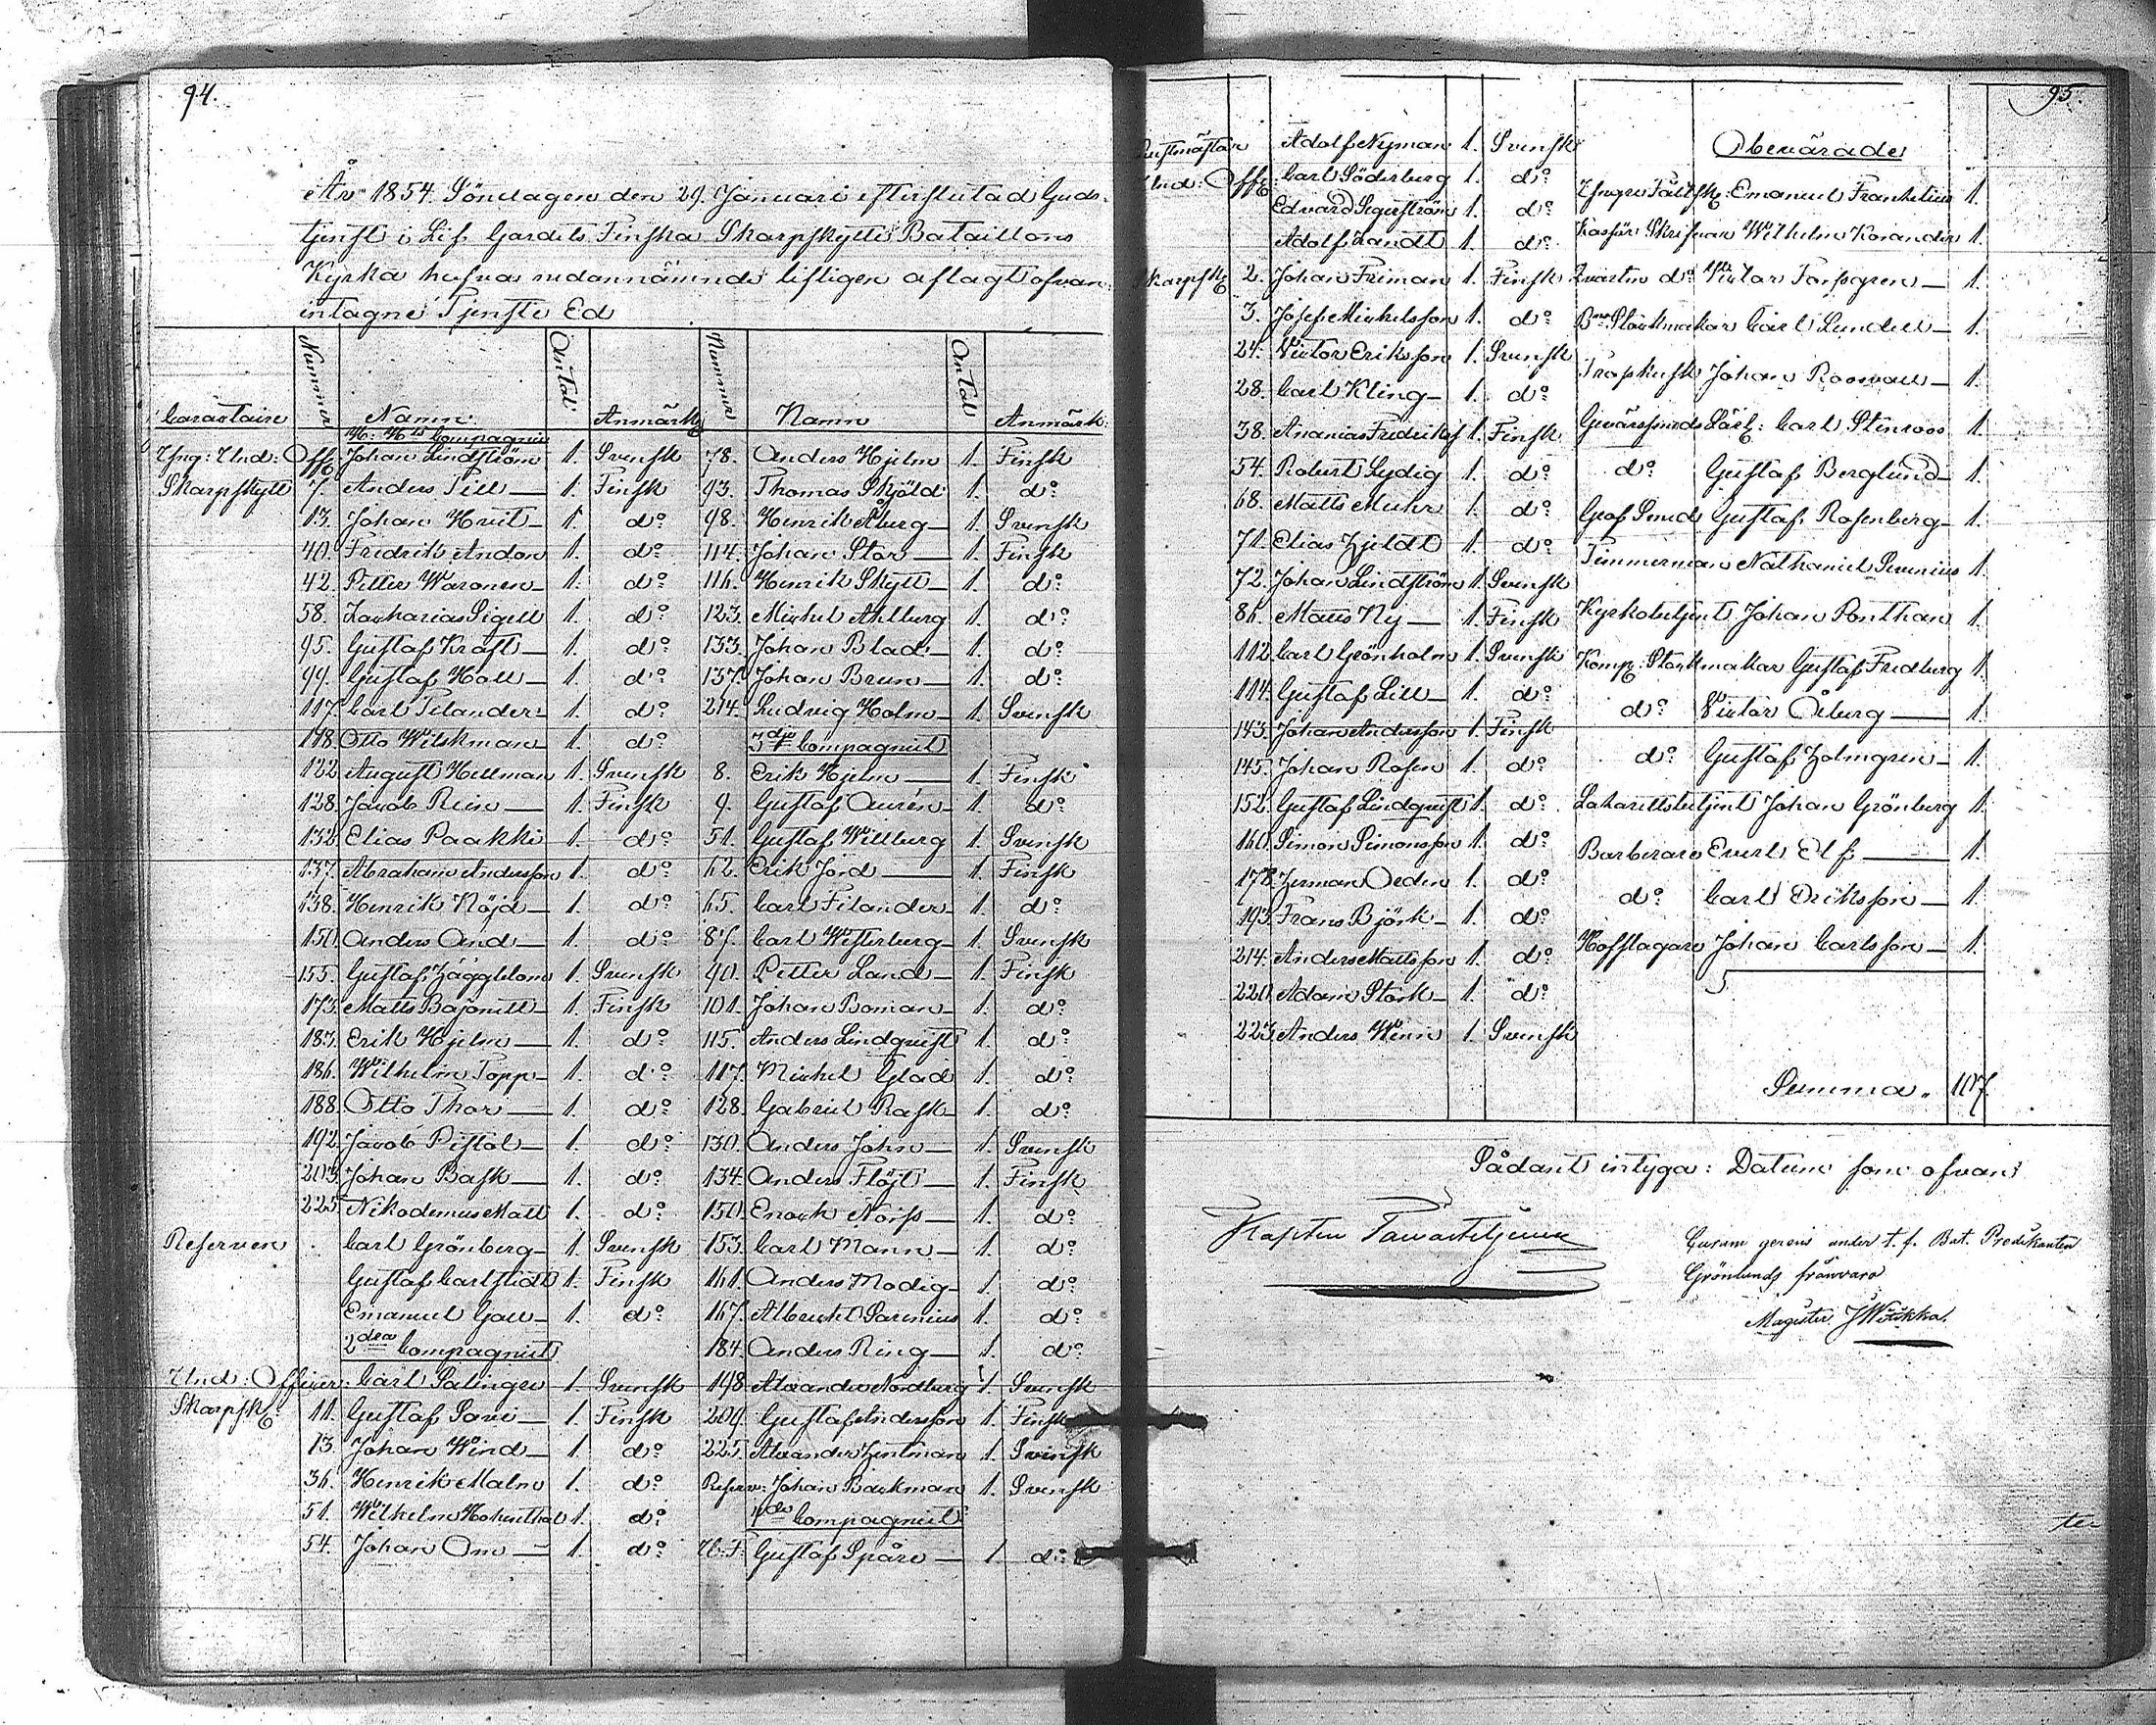 94.
År 1854 Söndagen den 29 Januari efterslutad Guds-
tjenst i Lif Gardets Finska Skarpskytte Bataillons
Kyrka hafva nedannämnde lifligen aflagt ofvan-
intagne Tjenste Ed
Caractaire Nummer Namn Antal Anmärk: Nummer Namn Antal Anmärk:
H: H:s Compagnie
Yng: Und: Off: Johan Lindström 1. Svensk 78. Anders Hjelm 1. Finsk
Skarpskytt 7. Anders Till 1. Finsk 93. Thomas Skjöld 1. do
13. Johan Hvit 1. do 98. Henrik Åberg 1. Svensk
40. Fredrik Andon 1. do 114. Johan Stor 1. Finsk
42. Petter Waronen 1. do 116. Henrik Skytt 1. do
58. Zacharias Sigell 1. do 123. Michel Ahlberg 1. do
95. Gustaf Kraft 1. do 133. Johan Blad 1. do
99. Gustaf Hall 1. do 137. Johan Brun 1. do
117. Carl Tilander 1. do 214. Ludvig Holm 1. Svensk
118. Otto Wilskman 1. do 3dje Compagniet
122. August Hellman 1. Svensk 8. Erik Hjelm 1. Finsk
128. Jacob Rein 1. Finsk 9. Gustaf Aurén 1. do
132. Elias Paakki 1. do 51. Gustaf Willberg 1. Svensk
137. Abraham Andersson 1. do 62. Erik Jord 1. Finsk
138. Henrik Nöjd 1. do 65. Carl Filander 1. do
150. Anders And 1. do 87. Carl Westerberg 1. Svensk
155. Gustaf Häggblom 1. Svensk 90. Petter Land 1. Finsk
173. Matts Bajonett 1. Finsk 101. Johan Boman 1. do
183. Erik Hjelm 1. do 115. Anders Lindqvist 1. do
186. Wilhelm Topp 1. do 117. Michel Glad 1. do
188. Otto Thor 1. do 128. Gabriel Rask 1. do
192. Jacob Pistol 1. do 130. Anders John 1. Svensk
203. Johan Bask 1. do 134. Anders Flöjt 1. Finsk
225. Nikodemus Matt 1. do 150. Enock Norss 1. do
Reserven Carl Grönberg 1. Svensk 153. Carl Mann 1. do
Gustaf Carlstedt 1. Finsk 161. Anders Modig 1. do
Emanuel Gau 1. do 167. Albrecht Sarenius 1. do
2dra Compagniet 184. Anders Ring 1. do
Und: Officer: Carl Salinger 1. Svensk 198. Alexander Nordberg 1. Svensk
Skarpsk: 11. Gustaf Savi 1. Finsk 209. Gustaf Andersson 1. Finsk
13. Johan Wind 1. do 225. Alexander Hentman 1. Svensk
36. Henrik Malm 1. do Reserv: Johan Backman 1. Svensk
51. Wilhelm Hohenthal 1. do 4de Compagniet
54. Johan Om 1. do U: F. Gustaf Spåre 1. do
95.
Adolf Nyman 1. Svensk Obevärade
Und: Off: Carl Söderberg 1. do
Edvard Segerström 1. do Yngre Fältsk: Emanuel Frankelius 1.
Adolf Zandt 1. do Kassör Skrifvar Wilhelm Korander 1.
Skarpsk: 2. Johan Friman 1. Finsk Qvartm do Victor Forssgren 1.
3. Josef Michelsson 1. do Bns Stöckmakar Carl Lundell 1.
24. Victor Eriksson 1. Svensk
28. Carl Kling 1. do Trosskusk Johan Roosvall 1.
38. Ananias Fredriks 1. Finsk Gevärssmeds Lärl: Carl Stenroos 1.
54. Robert Lydig 1. do do Gustaf Berglund 1.
68. Matts Muhr 1. do Grof Smed Gustaf Rosenberg 1.
71. Elias Hjeldt 1. do Timmerman Nathaniel Severius 1.
72. Johan Lindström 1. Svensk
86. Matts Ny 1. Finsk Kyrkobetjent Johan Ponthan 1.
112. Carl Grönholm 1. Svensk Komp: Stockmakar Gustaf Fredberg 1.
114. Gustaf Lill 1. do do Victor Öberg 1.
143. Johan Andersson 1. Finsk
145. Johan Rosen 1. do do Gustaf Holmgren 1.
152. Gustaf Lindqvist 1. do Lazarettsbetjent Johan Grönberg 1.
160. Simon Simonsson 1. do Barberare Evert Elf 1.
178. Herman Oeden 1. do do Carl Eriksson 1.
193. Frans Björk 1. do Hofslagare Johan Carlsson 1.
214. Anders Mattsson 1. do
220. Adam Stark 1. do
223. Anders Wenn 1. Svensk
Summa. 107.
Sådant intyga: Datum som ofvan
Kapten Tawastsjerna
Curam gerens under t. f. Bat. Predikanten
Grönlunds frånvaro
Magister J Wirikka.